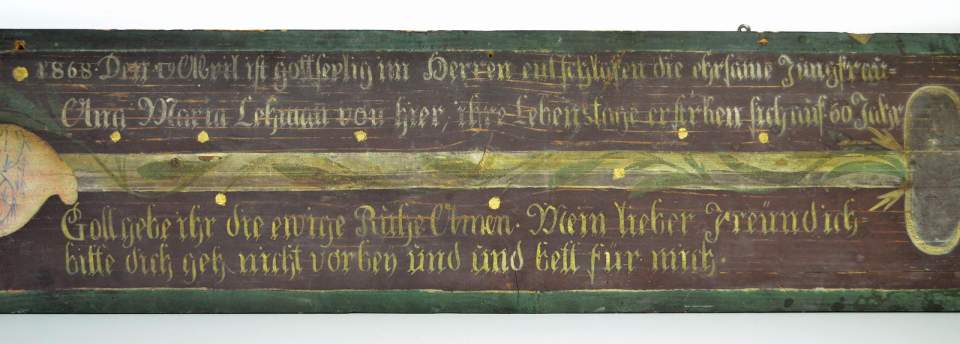 1868 Den 19 April ist gottseelig im Herren entschlafen die ehrsame Jungfrau-
Ana Maria Lehman von hier, ihre Lebenstage ersträken sich auf 60 Jahr
Gott gebe ihr die ewige Ruhe Amen. Mein lieber Freünd ich-
bitte dich geh nicht vorbey und und bett für mich.